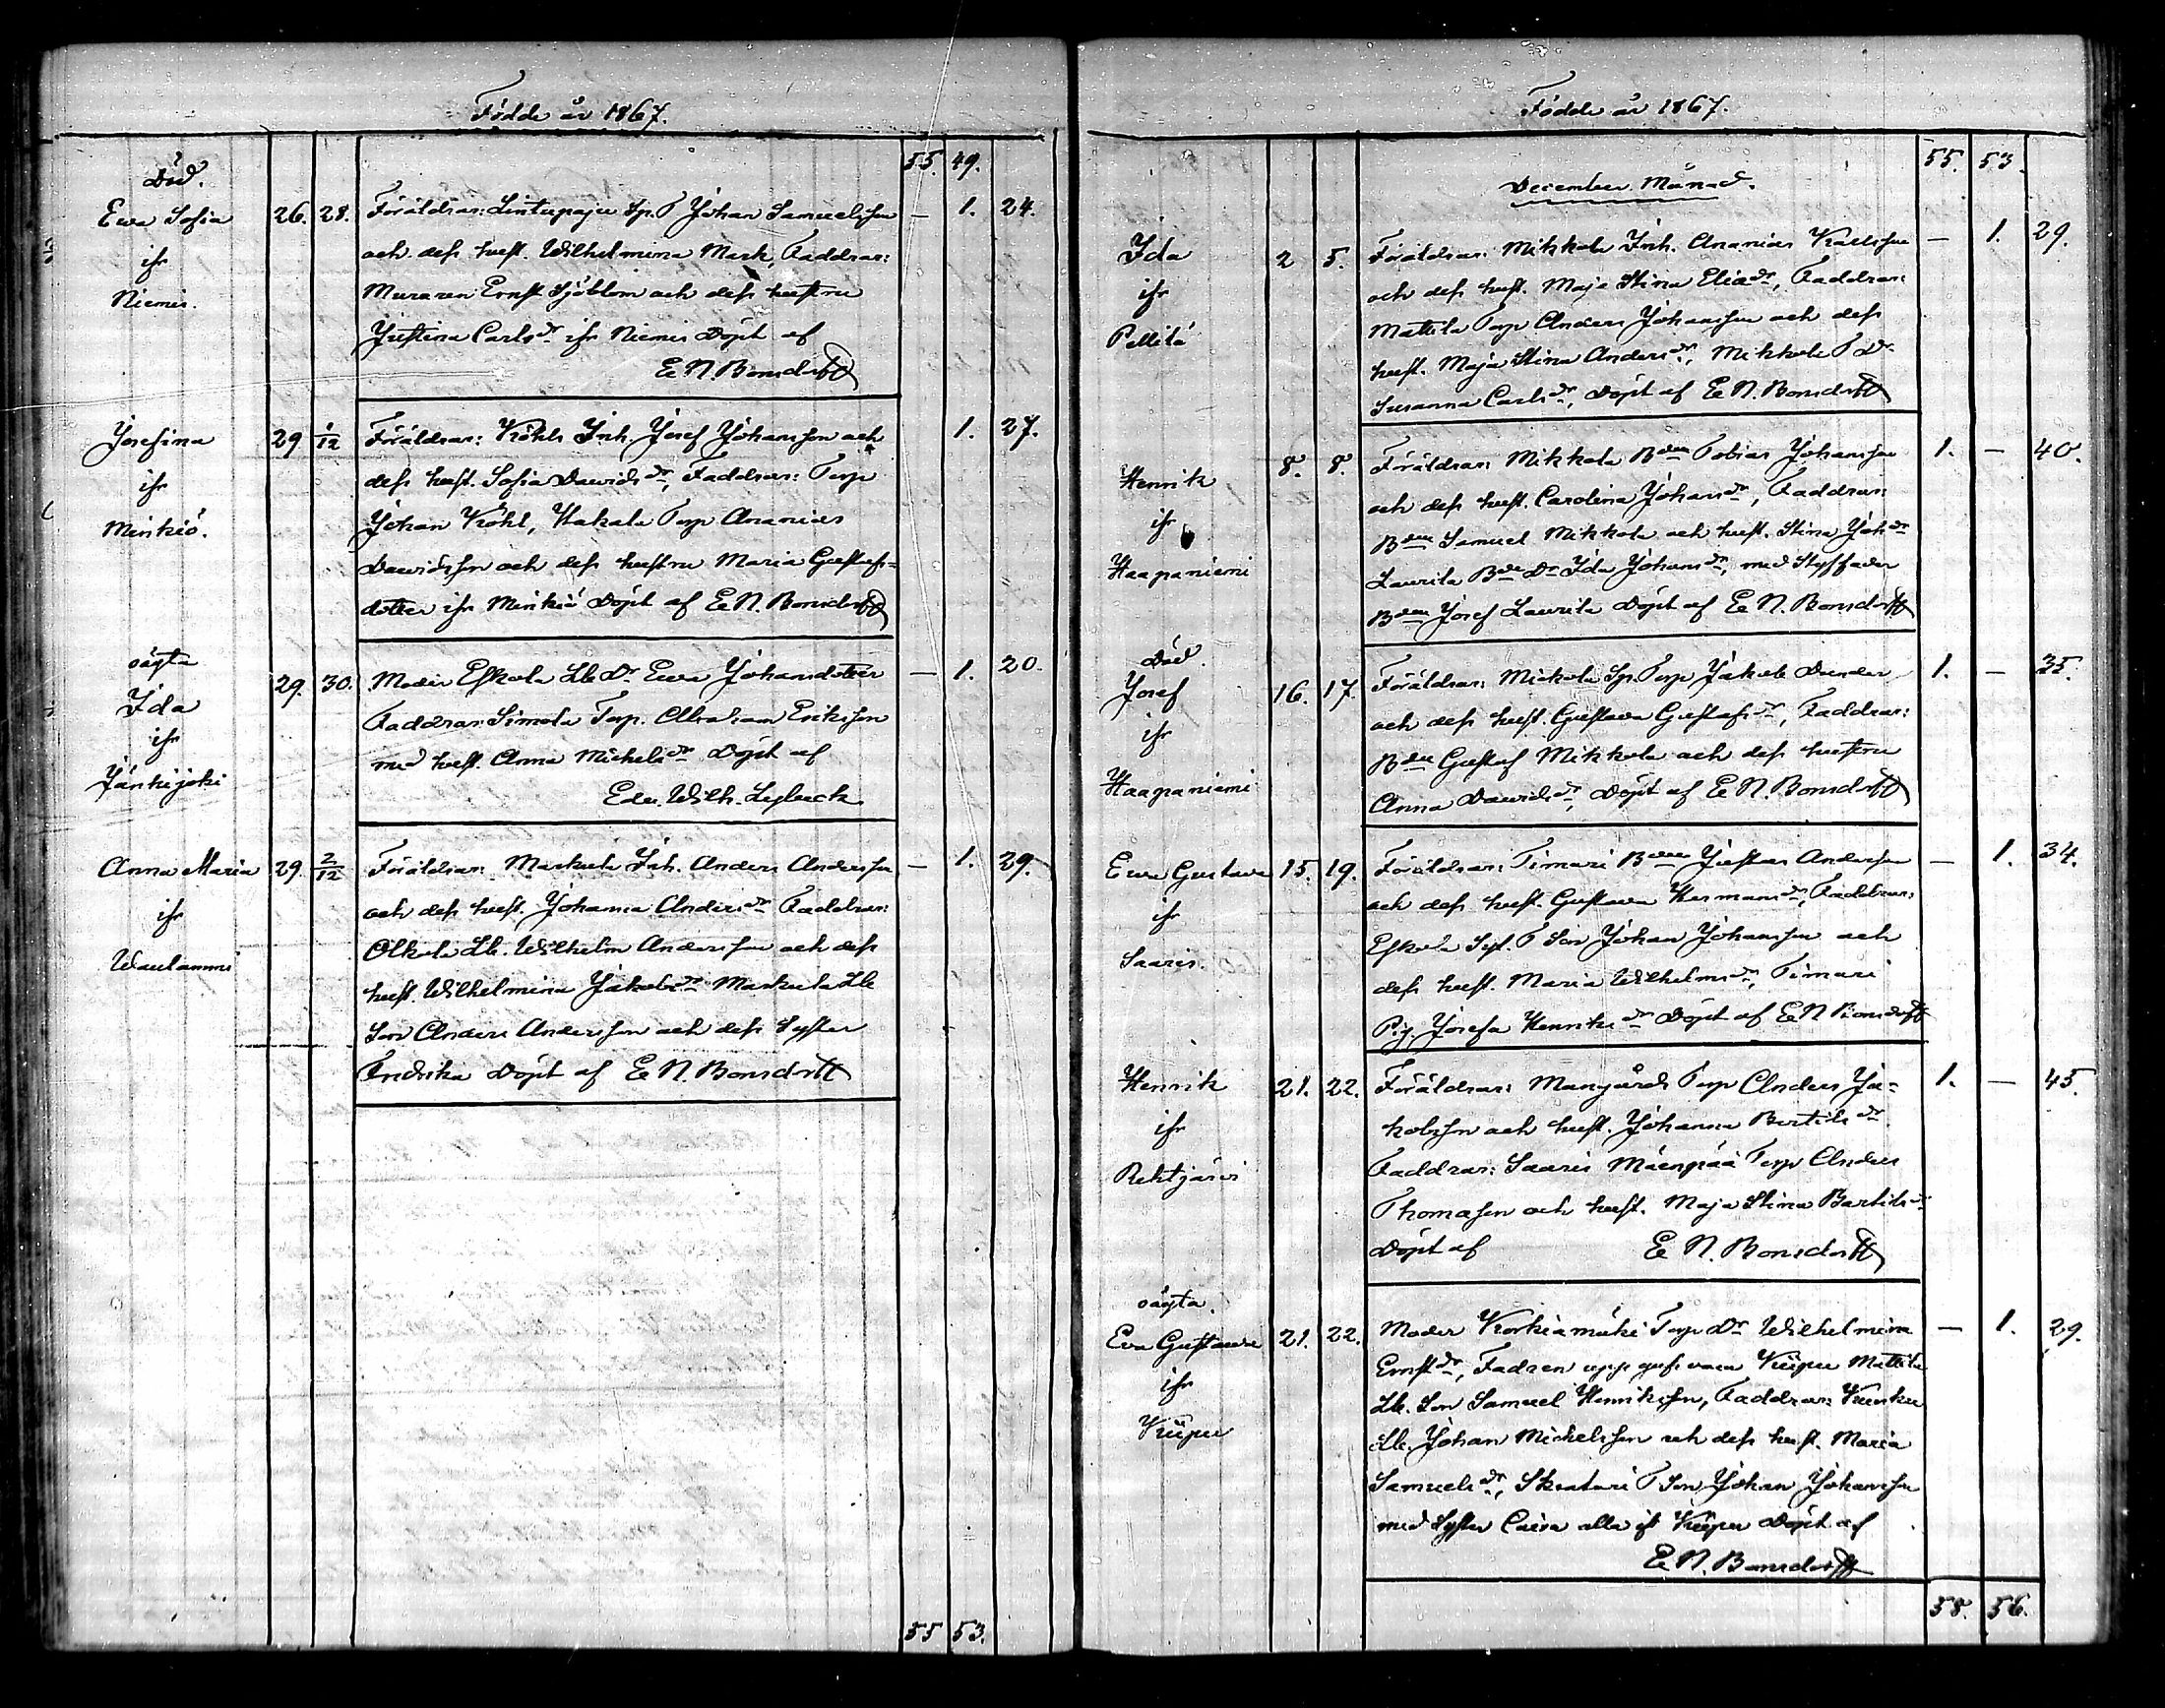 Födde år 1867.
55. 49.
Död.
Ewa Sofia 26. 28. Föräldrar: Lintupaju Sp. T Johan Samuelsson — 1. 24.
ifr och dess hust. Wilhelmina Mark, Faddrar:
Niemis. Muraren Ernst Sjöblom och dess hustru
Justina Carlsdr ifr Niemis Döpt af
E N. Bonsdorff
Josefina 29 1/12 Föräldrar: Kohls Inh. Josef Johansson och 1. 27.
ifr dess hust. Sofia Davidsdr, Faddrar: Torp
Minkiö. Johan Kohl, Hakala Torp Ananias
Davidsson och dess hustru Maria Gustafs-
dotter ifr Minkiö Döpt af E N. Bonsdorff
oägta
Ida 29. 30. Moder Eskola Lb Dr Ewa Johansdotter — 1. 20.
ifr Faddrar: Simola Torp. Abraham Eriksson
Jänhijoki med hust. Anna Michelsdr Döpt af
Edv. Wilh. Lybeck
Anna Maria 29. 2/12 Föräldrar: Markula Inh. Anders Andersson — 1. 29.
ifr och dess hust. Johanna Andersdr Faddrar:
Waulammi Olkola Lb. Wilhelm Andersson och dess
hust. Wilhelmina Jakobsdr Markula Lb
Son Anders Andersson och dess Syster
Fredrika Döpt af E N. Bonsdorff
55 53.
Födde år 1867.
55. 53.
December Månad.
Ida 2 5. Föräldrar: Mikkola Inh. Ananias Karlsson — 1. 29.
ifr och dess hust. Maja Stina Eliædr, Faddrar:
Pellilä Mattila Torp Anders Johansson och dess
hust. Maja Stina Andersdr, Mikkola T Dr
Susanna Carlsdr, Döpt af E N. Bonsdorff
Henrik 8. 8. Föräldrar: Mikkola Bden Tobias Johansson 1. — 40.
ifr och dess hust. Carolina Johansdr, Faddrar:
Haapaniemi Bden Samuel Mikkola och hust. Stina Johdr
Laurila Bde Dr Ida Johansdr, med Styffader
Bden Josef Laurila Döpt af E N. Bonsdorff
Död.
Josef 16. 17. Föräldrar: Mickola Sp. Torp Jakob Dunder 1. — 35.
ifr och dess hust. Gustava Gustafsdr, Faddrar:
Haapaniemi Bden Gustaf Mikkola och dess hustru
Anna Davidsdr, Döpt af E N. Bonsdorff
Ewa Gustava 15. 19. Föräldrar: Timari Bden Justus Andersson — 1. 34.
ifr och dess hust. Gustava Hermansdr, Faddrar:
Saaris. Eskola Spl. T Son Johan Johansson och
dess hust. Maria Wilhelmsdr, Timari
Pig. Josefa Henriksdr Döpt af E N Bonsdorff
Henrik 21. 22. Föräldrar: Mangårds Torp Anders Ja- 1. — 45.
ifr kobsson och hust. Johanna Bertilsdr.
Rehtijärvi Faddrar: Saaris Mäenpää Torp Anders
Thomasson och hust. Maja Stina Bertilsdr
Döpt af E N. Bonsdorff
oägta.
Eva Gustava 21. 22. Moder Korkiamäki Torp Dr Wilhelmina — 1. 29.
ifr Ernstdr, Fadren uppgifs vara Kiipu Mattila
Kiipu Lb. Son Samuel Henriksson, Faddrar:
Lb. Johan Michelsson och dess hust. Maria
Samuelsdr, Skratari T Son Johan Johansson
med Syster Caisa alla ifr Kiipu Döpt af
E N. Bonsdorff
58. 56.